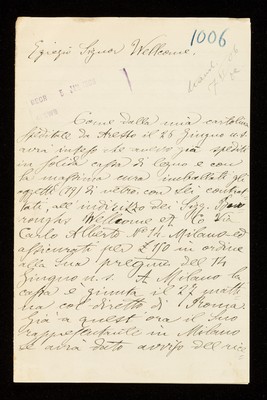 1006
Egregio Signor Wellcome,
Come dalla mia cartolina
speditale da Arezzo il 25 Giugno u.s.
avrà inteso che avevo già spedito
in solida cassa di legno e con
la massima cura imballati gli
oggetti (19) di vetro, con Lei contrat
tati, all'indirizzo dei Sigg. Bur
roughs Wellcome & Co Via
Carlo Alberto No 14 Milano ed
assicurati per £ 10 in ordine
alla Sua pregma del 14
Giugno u.s. A Milano la
cassa è giunta il 27 matti
na col diretto di Roma.
Già a quest'ora il Suo
rappresentante in Milano
le avrà dato avviso del rice